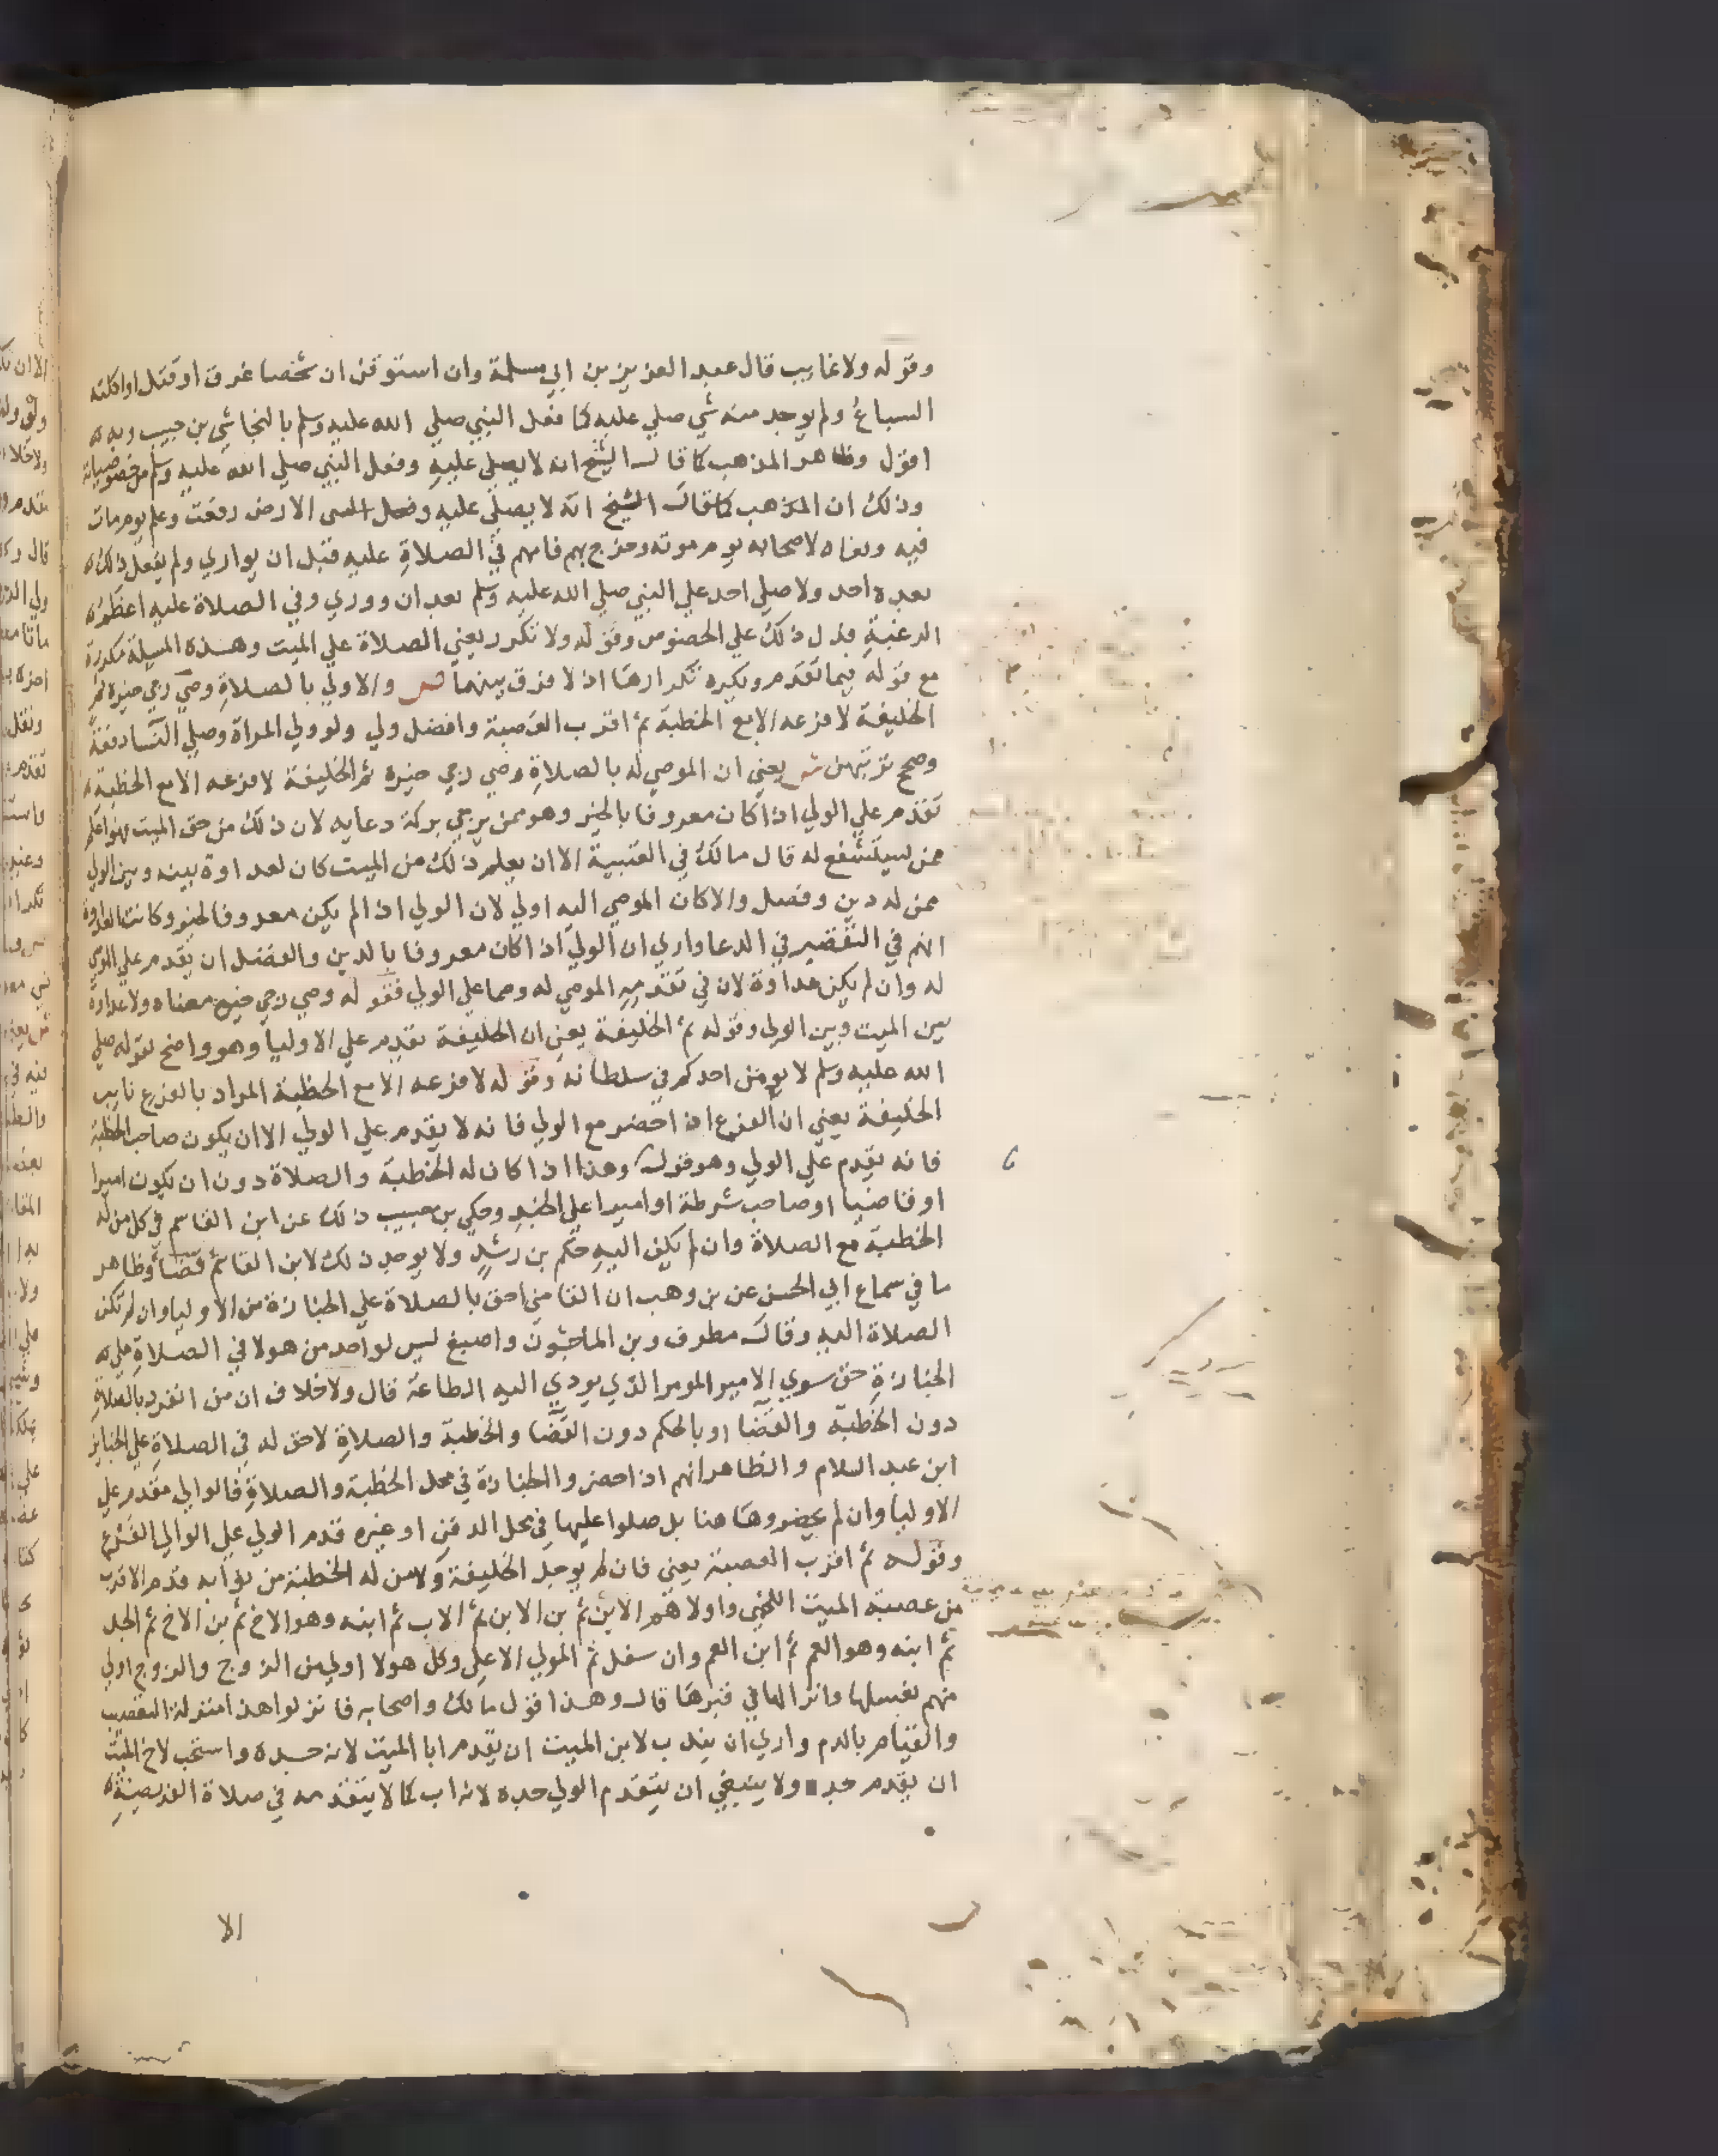 وقوله ولا غايب قال عبد العزيز بن ابي مسلمة وان استوقن ان شخصا غرق او قتل او اكلته
السباع ولم يوجد منه شي صلي عليه كما فعل النبي صلي الله عليه وسلم بالنجاشي بن حبيب وبه
اقول وظاهر المذهب كما قال الشيخ انه لا يصلي عليه وفعل النبي صلي الله عليه وسلم من خصوصياته
وذلك ان المذهب كما قال الشيخ انه لا يصلي عليه الارض رفعت وعلم يوم مات
فيه ونعاه لاصحابه يوم موته وخرج بهم فامهم في الصلاة عليه قبل ان يواري ولم يفعل ذلك
بعده احد ولا صلي احد علي النبي صلي الله عليه وسلم بعد ان ووري وفي الصلاة عليه اعظم
الرغبة فدل ذلك علي الخصوص وقوله ولا تكرر يعني الصلاة علي الميت وهذه المسيلة مكررة
مع قوله فيما تقدم ويكره تكرارها اذ لا فرق بينهما ص والاولي بالصلاة وصي رجي خيره ثم
الخليفة لا فرعه الا مع الخطبة ثم اقرب العصبة وافضل ولي ولو ولي المراة وصلي النسا دفعة
وصحح ترتبهن ش يعني ان الموصي له بالصلاة وصي رجي خيره ثم الخليفة لا فرعه الا مع الخطبة
تقدم علي الولي اذا كان معروفا بالخير وهو ممن يرجي بركة دعايه لان ذلك من حق الميت فهو اعلم
ممن يستشفع له قال مالك في العتبية الا ان يعلم ذلك من الميت كان لعداوة بينه وبين الولي
ممن له دين وفضل والا كان الموصي اليه اولي لان الولي اذا لم يكن معروفا بالخير وكانت العداوة
اتهم في التقصير في الدعا واري ان الولي اذا كان معروفا بالدين والفضل ان يقدم علي الموصي
له وان لم يكن عداوة لان في تقدمه الموصي له وصما علي الولي فقوله وصي رجي خيره معناه ولا عداوة
بين الميت وبين الولي وقوله ثم الخليفة يعني ان الخليفة تقدم علي الاوليا وهو واضح لقوله صلي
الله عليه وسلم لا يومن احدكم في سلطانه وقوله لا فرعه الا مع الخطبة المراد بالفرع نايب
الخليفة يعني ان الفرع اذا حضر مع الولي فانه لا يقدم علي الولي الا ان يكون صاحب الخطبة
فانه تقدم علي الولي وهو قول وهذا اذا كان له الخطبة والصلاة دون ان تكون اميرا
او قاضيا او صاحب شرطة او اميرا علي الجند وحكي بن حبيب ذلك عن ابن القاسم في كل من له
الخطبة مع الصلاة وان لم يكن اليه حكم بن رشد ولا يوجد ذلك لابن القاسم قضا وظاهر
ما في سماع ابي الحسن عن بن وهب ان القاضي احق بالصلاة علي الجنازة من الاوليا وان لم تكن
الصلاة اليه وقال مطرف وبن الماجشون واصبغ ليس لواحد من هولا في الصلاة علي
الجنازة حق سوي الامير المومر الذي يودي اليه الطاعة قال ولا خلاف ان من انفرد بالصلاة
دون الخطبة والقضا او بالحكم دون القضا والخطبة والصلاة لا حق له في الصلاة علي الجنايز
ابن عبد السلام والظاهر انهم اذا حضروا الجنازة في محل الخطبة والصلاة فالوالي مقدم علي
الاوليا وان لم يحضروها هنا بل صلوا عليها في محل الدفن او غيره قدم الولي علي الوالي الفرع
وقوله ثم اقرب العصبة يعني فان لم يوجد الخليفة ولا من له الخطبة من نوابه قدم الاقرب
من عصبة الميت اللخمي واولاهم الابن ثم بن الابن ثم الاب ثم ابنه وهو الاخ ثم بن الاخ ثم الجد
ثم ابنه وهو العم ثم ابن العم وان سفل ثم المولي الاعلي وكل هولا اولي من الزوج والزوج اولي
منهم بغسلها وانزالها في قبرها قال وهذا قول مالك واصحابه فانزلوا هذا منزلة التعصيب
والقيام بالدم واري ان يندب لابن الميت ان يقدم ابا الميت لانه جده واستحب لاخ الميت
ان يقدم جده ولا ينبغي ان يتقدم الولي جده لانه اب كما لا يتقدمه في صلاة الفريضة
الا